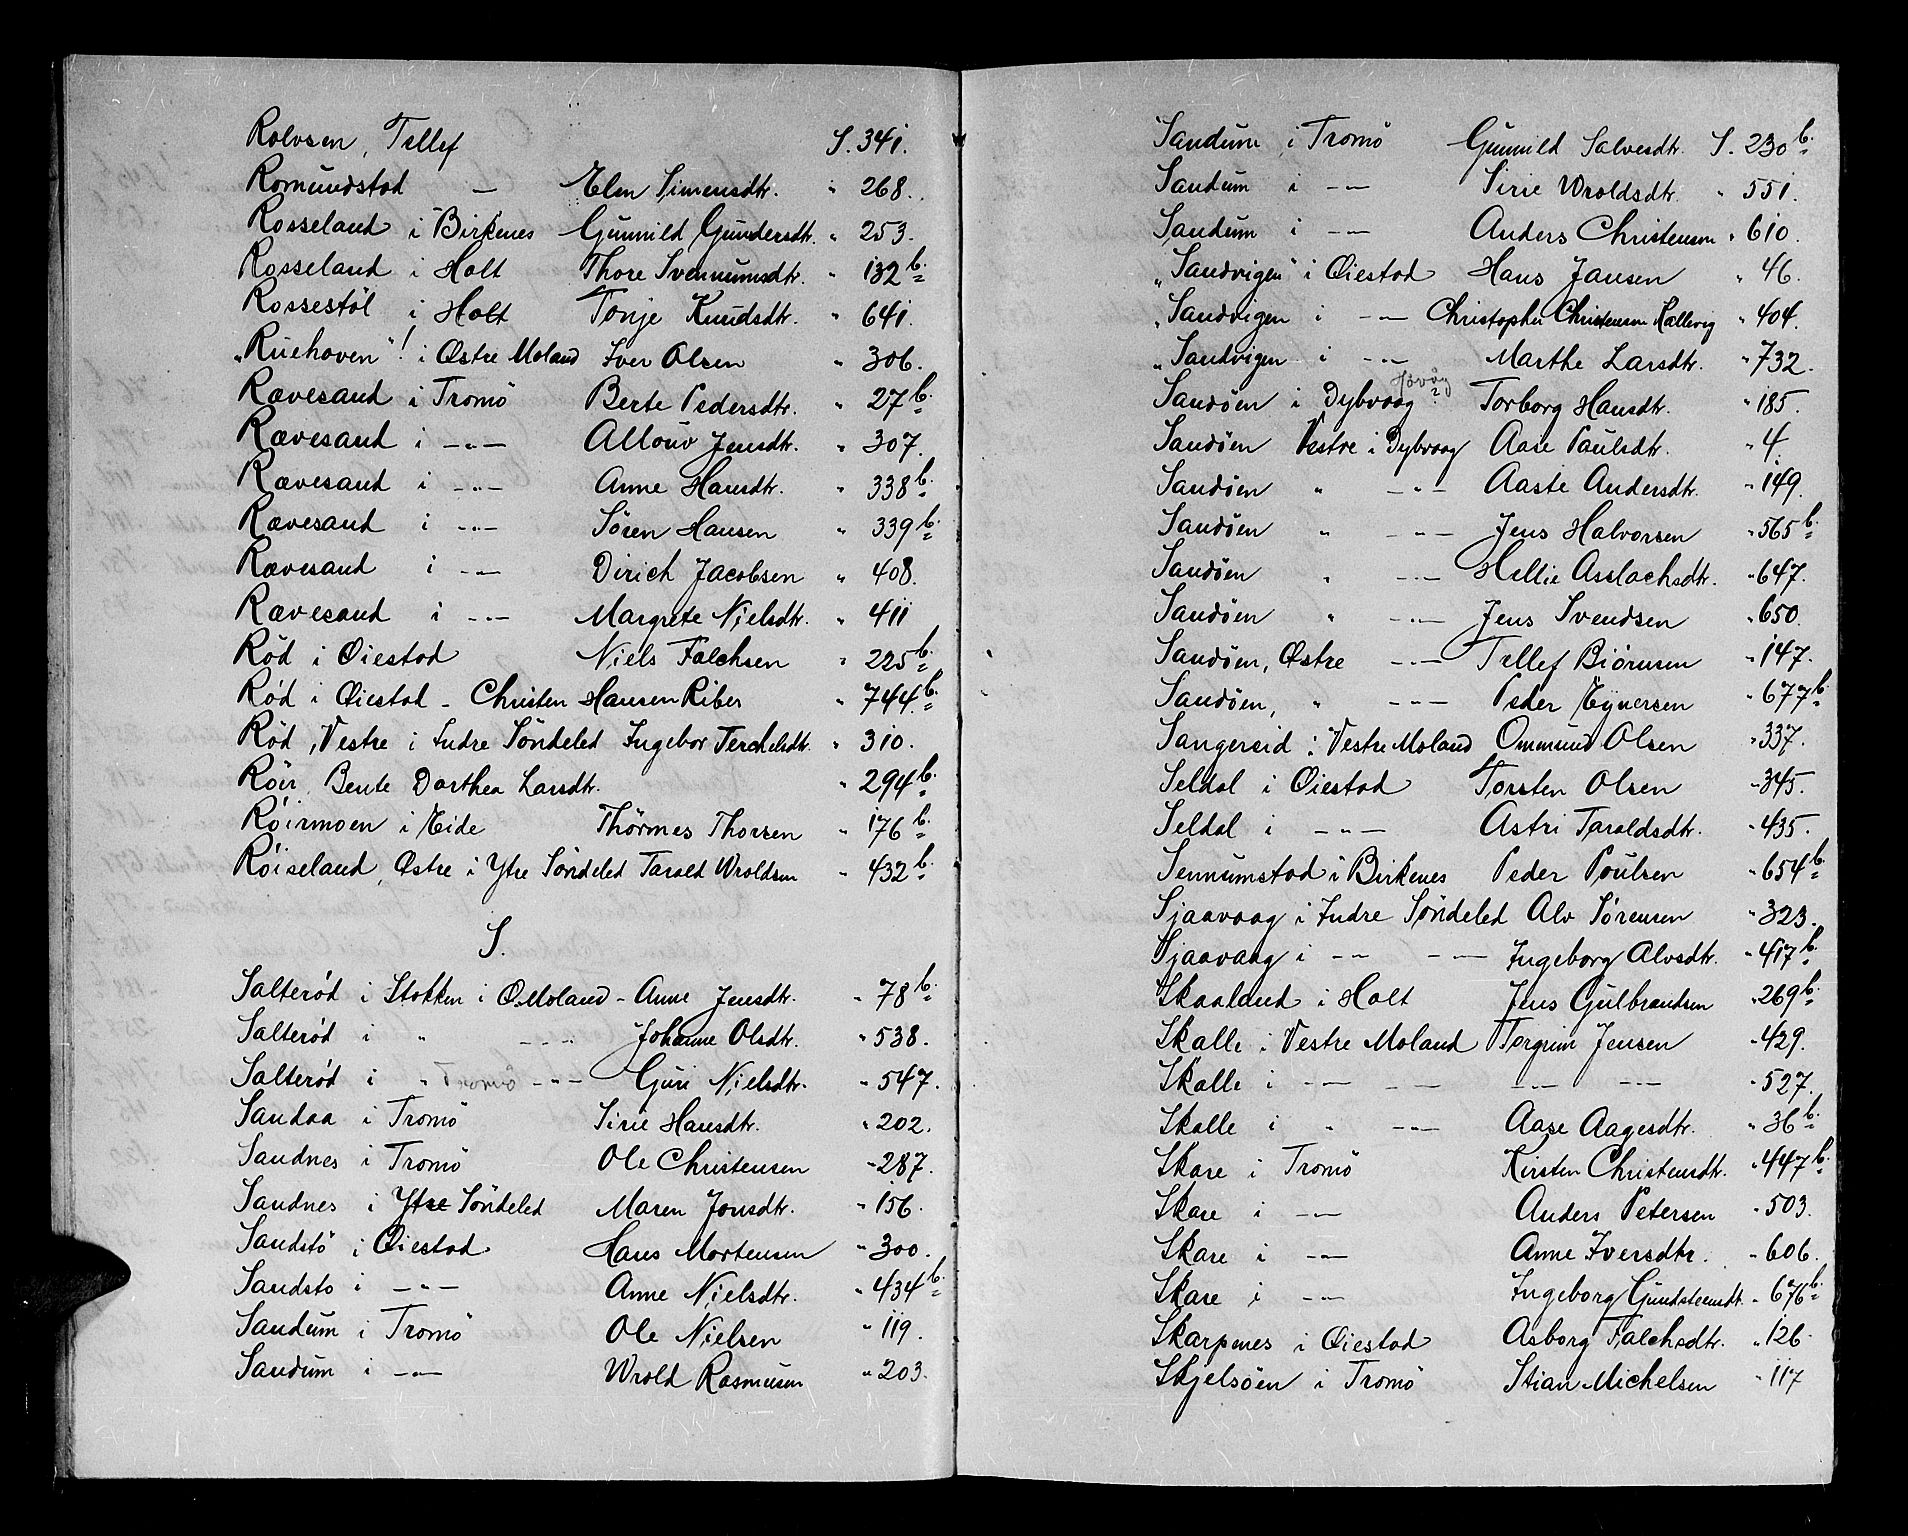 Rolvsen, Tellef S. 341.
Romundstad — Elen Simensdtr. " 268.
Rosseland i Birkenes Gunnild Gundersdtr. " 253.
Rosseland i Holt Thore Svennumsdtr. " 132 b.
Rossestöl i Holt Tonje Knudsdtr. " 641.
"Ruehoven"! i Østre Moland Iver Olsen " 306.
Rævesand i Tromö Berte Pedersdtr. " 27 b.
Rævesand i —"— Allouv Jensdtr. " 307.
Rævesand i —"— Anne Hansdtr. " 338 b.
Rævesand i —"— Sören Hansen " 339 b.
Rævesand i —"— Dirich Jacobsen " 408.
Rævesand i —"— Margrete Nielsdtr. " 411
Röd i Øiestad Niels Falchsen " 225 b.
Röd i Øiestad - Christen Hansen Riber " 744 b.
Röd, Vestre i Indre Söndeled Ingebor Terchelsdtr. " 310.
Röir, Bente Dorthea Larsdtr. " 294 b.
Röirmoen i Eide Thörmes Thorsen " 176 b.
Röiseland, Østre i Ytre Söndeled Tarald Wroldsen " 432 b.
S.
Salteröd i Stokken i Ø. Moland - Anne Jensdtr. " 78 b.
Salteröd i " —"— Johanne Olsdtr. " 538.
Salteröd i " Tromö —"— Guri Nielsdtr. " 547.
Sandaa i Tromö Sirie Hansdtr. " 202.
Sandnes i Tromö Ole Christensen " 287.
Sandnes i Ytre Söndeled Maren Jonsdtr. " 156.
Sandstö i Øiestad Hans Mortensen " 300.
Sandsto i —"— Anne Nielsdtr. " 434 b.
Sandum i Tromö Ole Nielsen " 119.
Sandum i —"— Wrold Rasmusen " 203.
Sandum i Tromö Gunnild Salvesdtr. S. 230 b.
Sandum i —"— Sirie Wroldsdtr. " 551.
Sandum i —"— Anders Christensen " 610.
"Sandvigen" i Øiestad Hans Jansen " 46.
"Sandvigen i —"— Christopher Christensen Kallevig " 404.
"Sandvigen i —"— Marthe Larsdtr. " 732.
Sandöen i Dybvaag Hövåg ? Torborg Hansdtr. " 185.
Sandöen Vestre i Dybvaag Aase Paulsdtr. " 4.
Sandöen " —"— Aaste Andersdtr. " 149.
Sandöen " —"— Jens Halvorsen " 565 b.
Sandöen " —"— Hellie Asslachsdtr. " 647.
Sandöen " —"— Jens Svendsen " 650.
Sandöen, Østre —"— Tellef Biörnsen " 147.
Sandöen, " —"— Peder Eynersen " 677 b.
Sangereid i Vestre Moland Ommund Olsen " 337.
Seldal i Øiestad Torsten Olsen " 345.
Seldal i —"— Astri Taraldsdtr. " 435.
Sennumstad i Birkenes Peder Poulsen " 654 b.
Sjaavaag i Indre Söndeled Alv Sörensen " 323.
Sjaavaag i —"— —"— Ingeborg Alvsdtr. " 417 b.
Skaaland i Holt Jens Gulbrandsen " 269 b.
Skalle i Vestre Moland Torgrim Jensen " 429.
Skalle i —"— —"— —"— —"— " 527.
Skalle i " —"— Aase Aagesdtr. " 36 b.
Skare i Tromö Kirsten Christensdtr. " 447 b.
Skare i —"— Anders Petersen " 503.
Skare i —"— Anne Iversdtr. " 606.
Skare i —"— Ingeborg Gundsteensdt. " 676 b.
Skarpnes i Øiestad Asborg Falchsdtr. " 126.
Skjelsöen i Tromö Stian Michelsen " 117